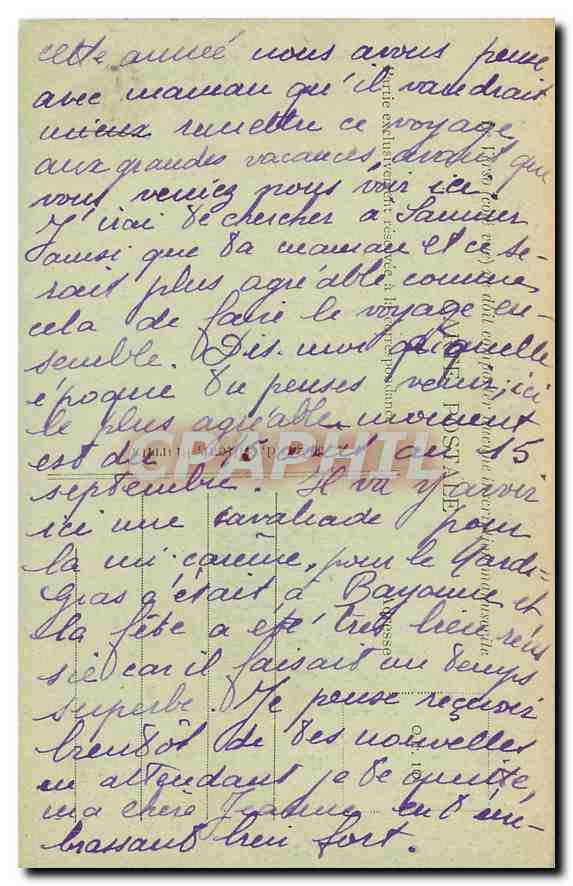 cette année nous avons pensé
avec maman qu'il vaudrait
mieux remettre ce voyage
aux grandes vacances, avant que
vous veniez nous voir ici.
J'irai te chercher à Saumur
ainsi que ta maman et ce se-
rait plus agréable comme
cela de faire le voyage en-
semble. Dis-moi quelle
époque tu penses venir, ici
le plus agréable moment
est du 15 août au 15
septembre. Il va y avoir
ici une cavalcade pour
la mi-carême, pour le Mardi-
Gras c'était à Bayonne et
la fête a été très bien réus
sie car il faisait un temps
superbe. Je pense recevoir
bientôt de tes nouvelles
en attendant je te quitte,
ma chère Jeanne en t'em-
brassant bien fort.
CARTE POSTALE
Partie exclusivement réservée à la correspondance
GRAPHIL